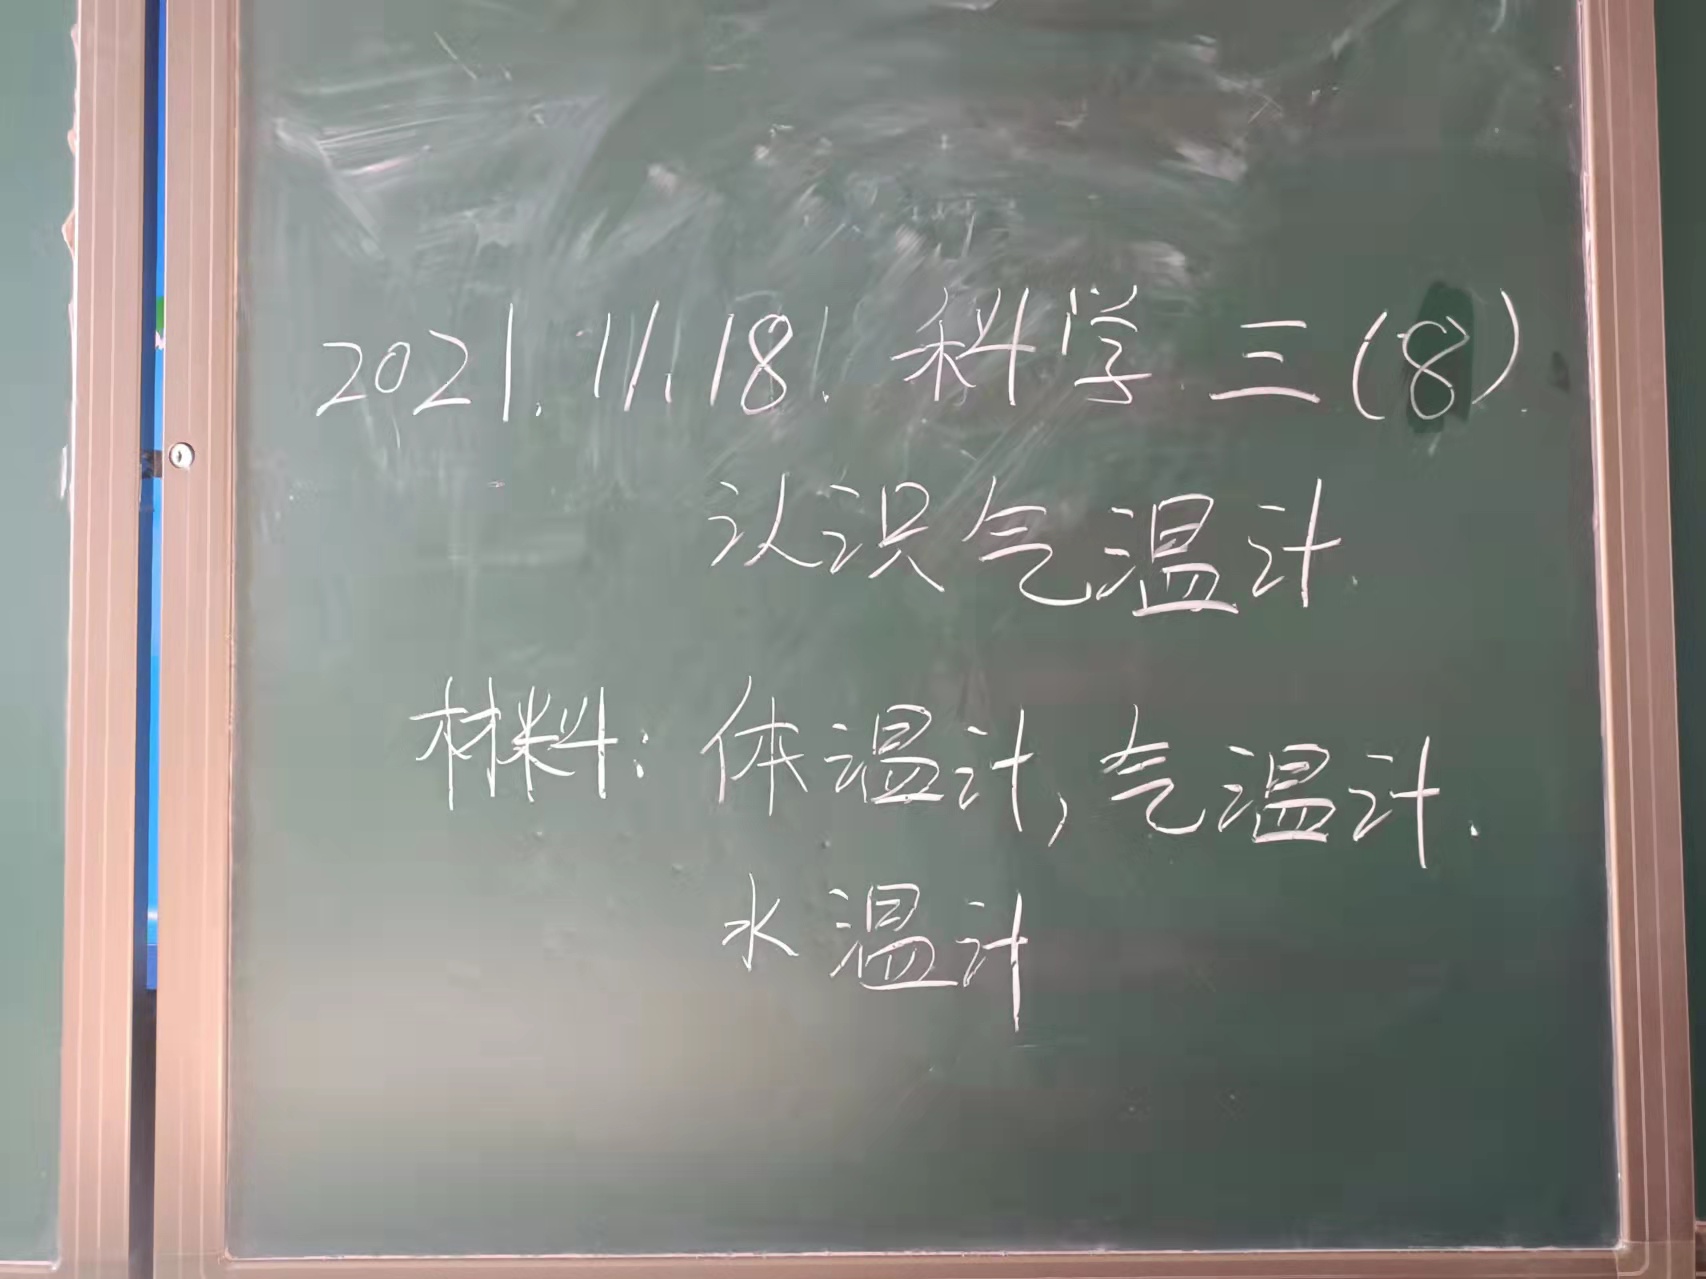 2021.11.18. 科学 三(8).
认识气温计.
材料: 体温计, 气温计.
水温计